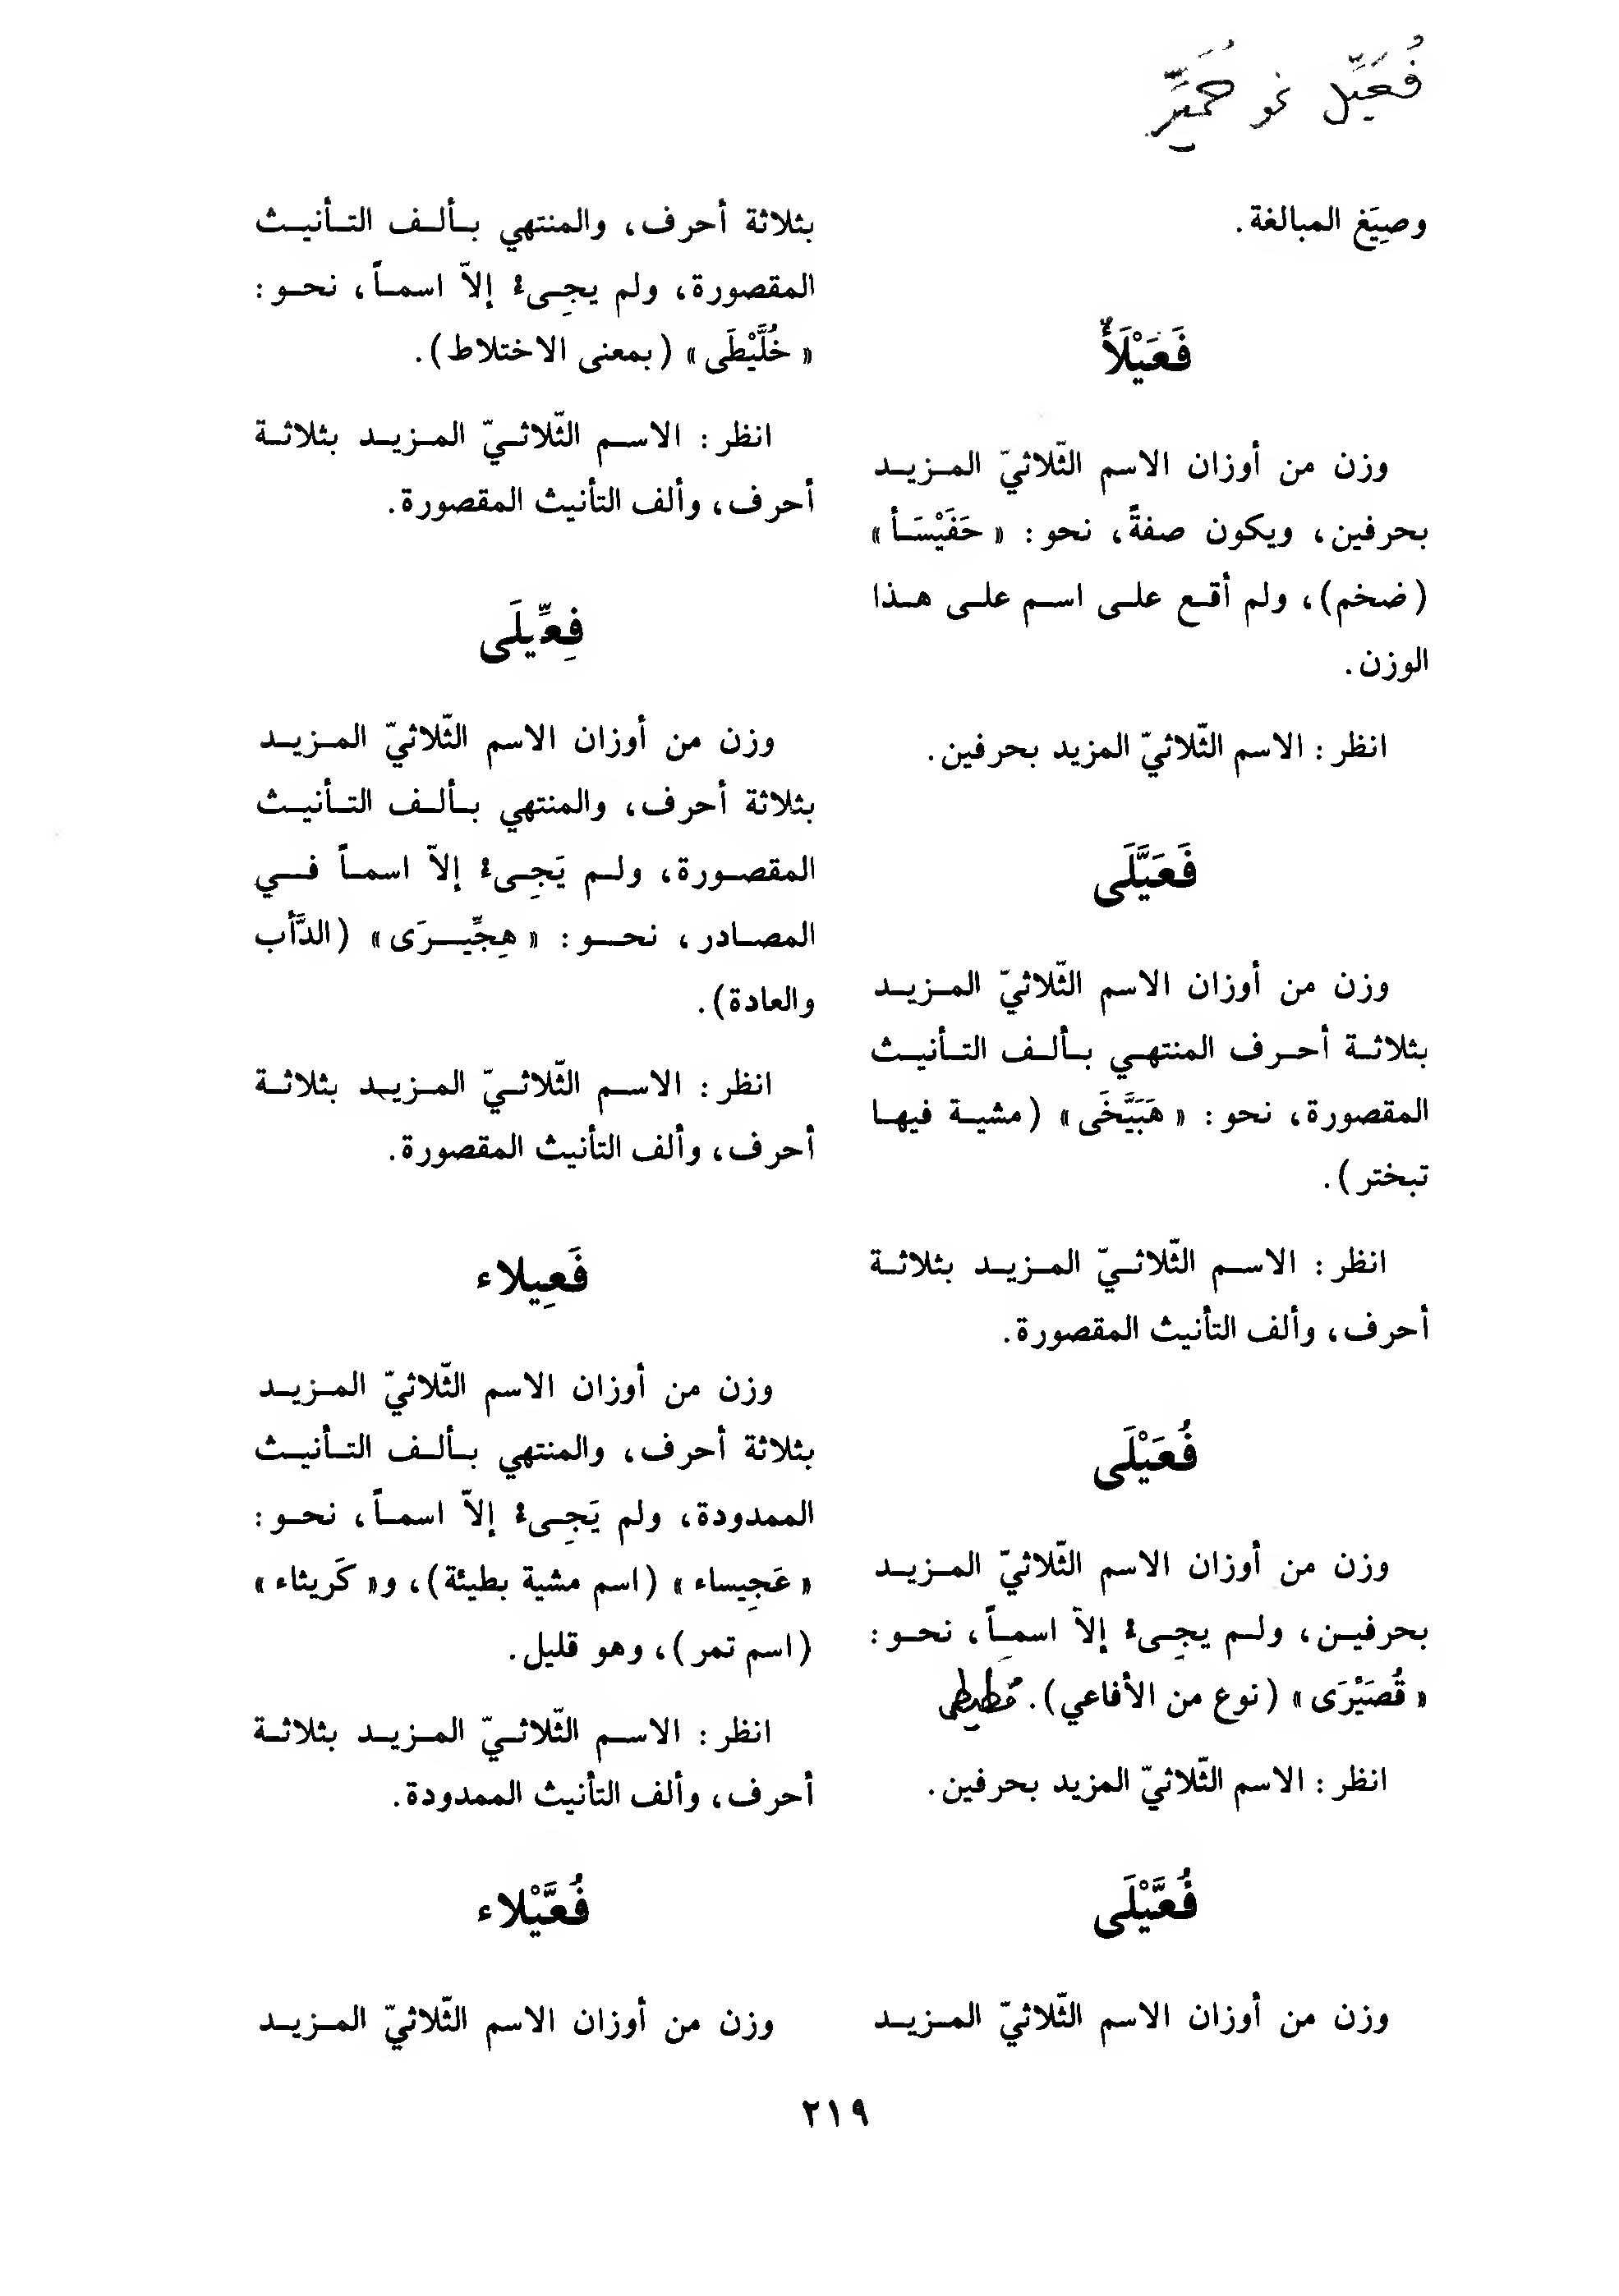 فُعَيِّل نحو حُمَيِّر
وصِيَغ المبالغة.
فَعَيْلَأٌ
وزن من أوزان الاسم الثّلاثيّ المـزيـد
بحرفين، ويكون صفةً، نحو: « حَفَيْسَـأ »
(ضخم)، ولم أقـع علـى اسـم علـى هـذا
الوزن.
انظر: الاسم الثّلاثيّ المزيد بحرفين.
فَعَيَّلَى
وزن من أوزان الاسم الثّلاثيّ المـزيـد
بثلاثـة أحـرف المنتهـي بـألـف التـأنيـث
المقصورة، نحو: « هَبَيَّخَى » (مشيـة فيهـا
تبختر).
انظر: الاسـم الثّلاثـيّ المـزيـد بثلاثـة
أحرف، وألف التأنيث المقصورة.
فُعَيْلَى
وزن من أوزان الاسم الثّلاثيّ المـزيـد
بحرفيـن، ولـم يجِـىءْ إلاّ اسمـاً، نحـو:
« قُصَيْرَى » (نوع من الأفاعي).
انظر: الاسم الثّلاثيّ المزيد بحرفين.
فُعَّيْلَى
وزن من أوزان الاسم الثّلاثيّ المـزيـد
بثلاثة أحرف، والمنتهي بـألـف التـأنيـث
المقصورة، ولم يجِـىءْ إلاّ اسمـاً، نحـو:
« خُلَّيْطَى » (بمعنى الاختلاط).
انظر: الاسـم الثّلاثـيّ المـزيـد بثلاثـة
أحرف، وألف التأنيث المقصورة.
فِعِّيلَى
وزن من أوزان الاسم الثّلاثيّ المـزيـد
بثلاثة أحرف، والمنتهي بـألـف التـأنيـث
المقصـورة، ولـم يَجِـىءْ إلاّ اسمـاً فـي
المصـادر، نحـو: « هِجِّيـرَى » (الدَّأب
والعادة).
انظر: الاسـم الثّلاثـيّ المـزيـد بثلاثـة
أحرف، وألف التأنيث المقصورة.
فَعِيلاء
وزن من أوزان الاسم الثّلاثيّ المـزيـد
بثلاثة أحرف، والمنتهي بـألـف التـأنيـث
الممدودة، ولم يَجِـىءْ إلاّ اسمـاً، نحـو:
« عَجِيساء » (اسم مشية بطيئة)، و« كَريثاء »
(اسم تمر)، وهو قليل.
انظر: الاسـم الثّلاثـيّ المـزيـد بثلاثـة
أحرف، وألف التأنيث الممدودة.
فُعَّيْلاء
وزن من أوزان الاسم الثّلاثيّ المـزيـد
٢١٩